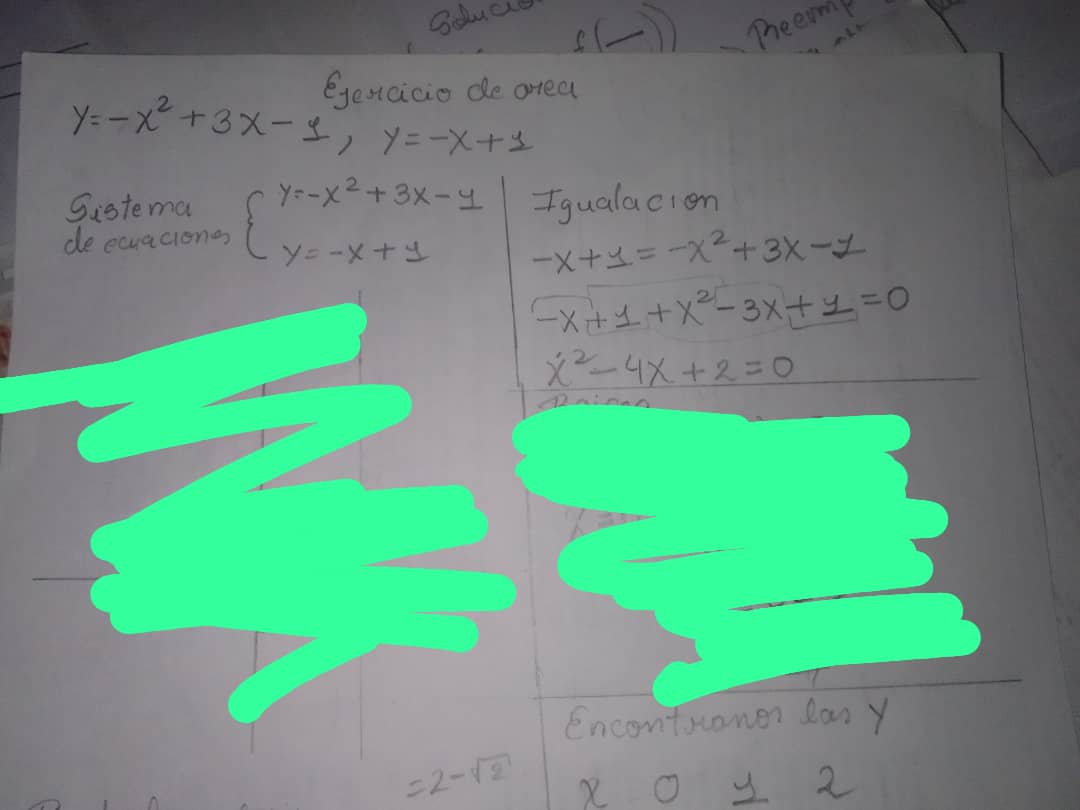 Solució
f(—))
Ejercicio de area
y=-x²+3x-1, y=-x+1
Sistema de ecuaciones { y=-x²+3x-1
y=-x+1
Igualacion
-x+1=-x²+3x-1
-x+1+x²-3x+1=0
x²-4x+2=0
Encontramos las y
=2-√2
x 0 1 2